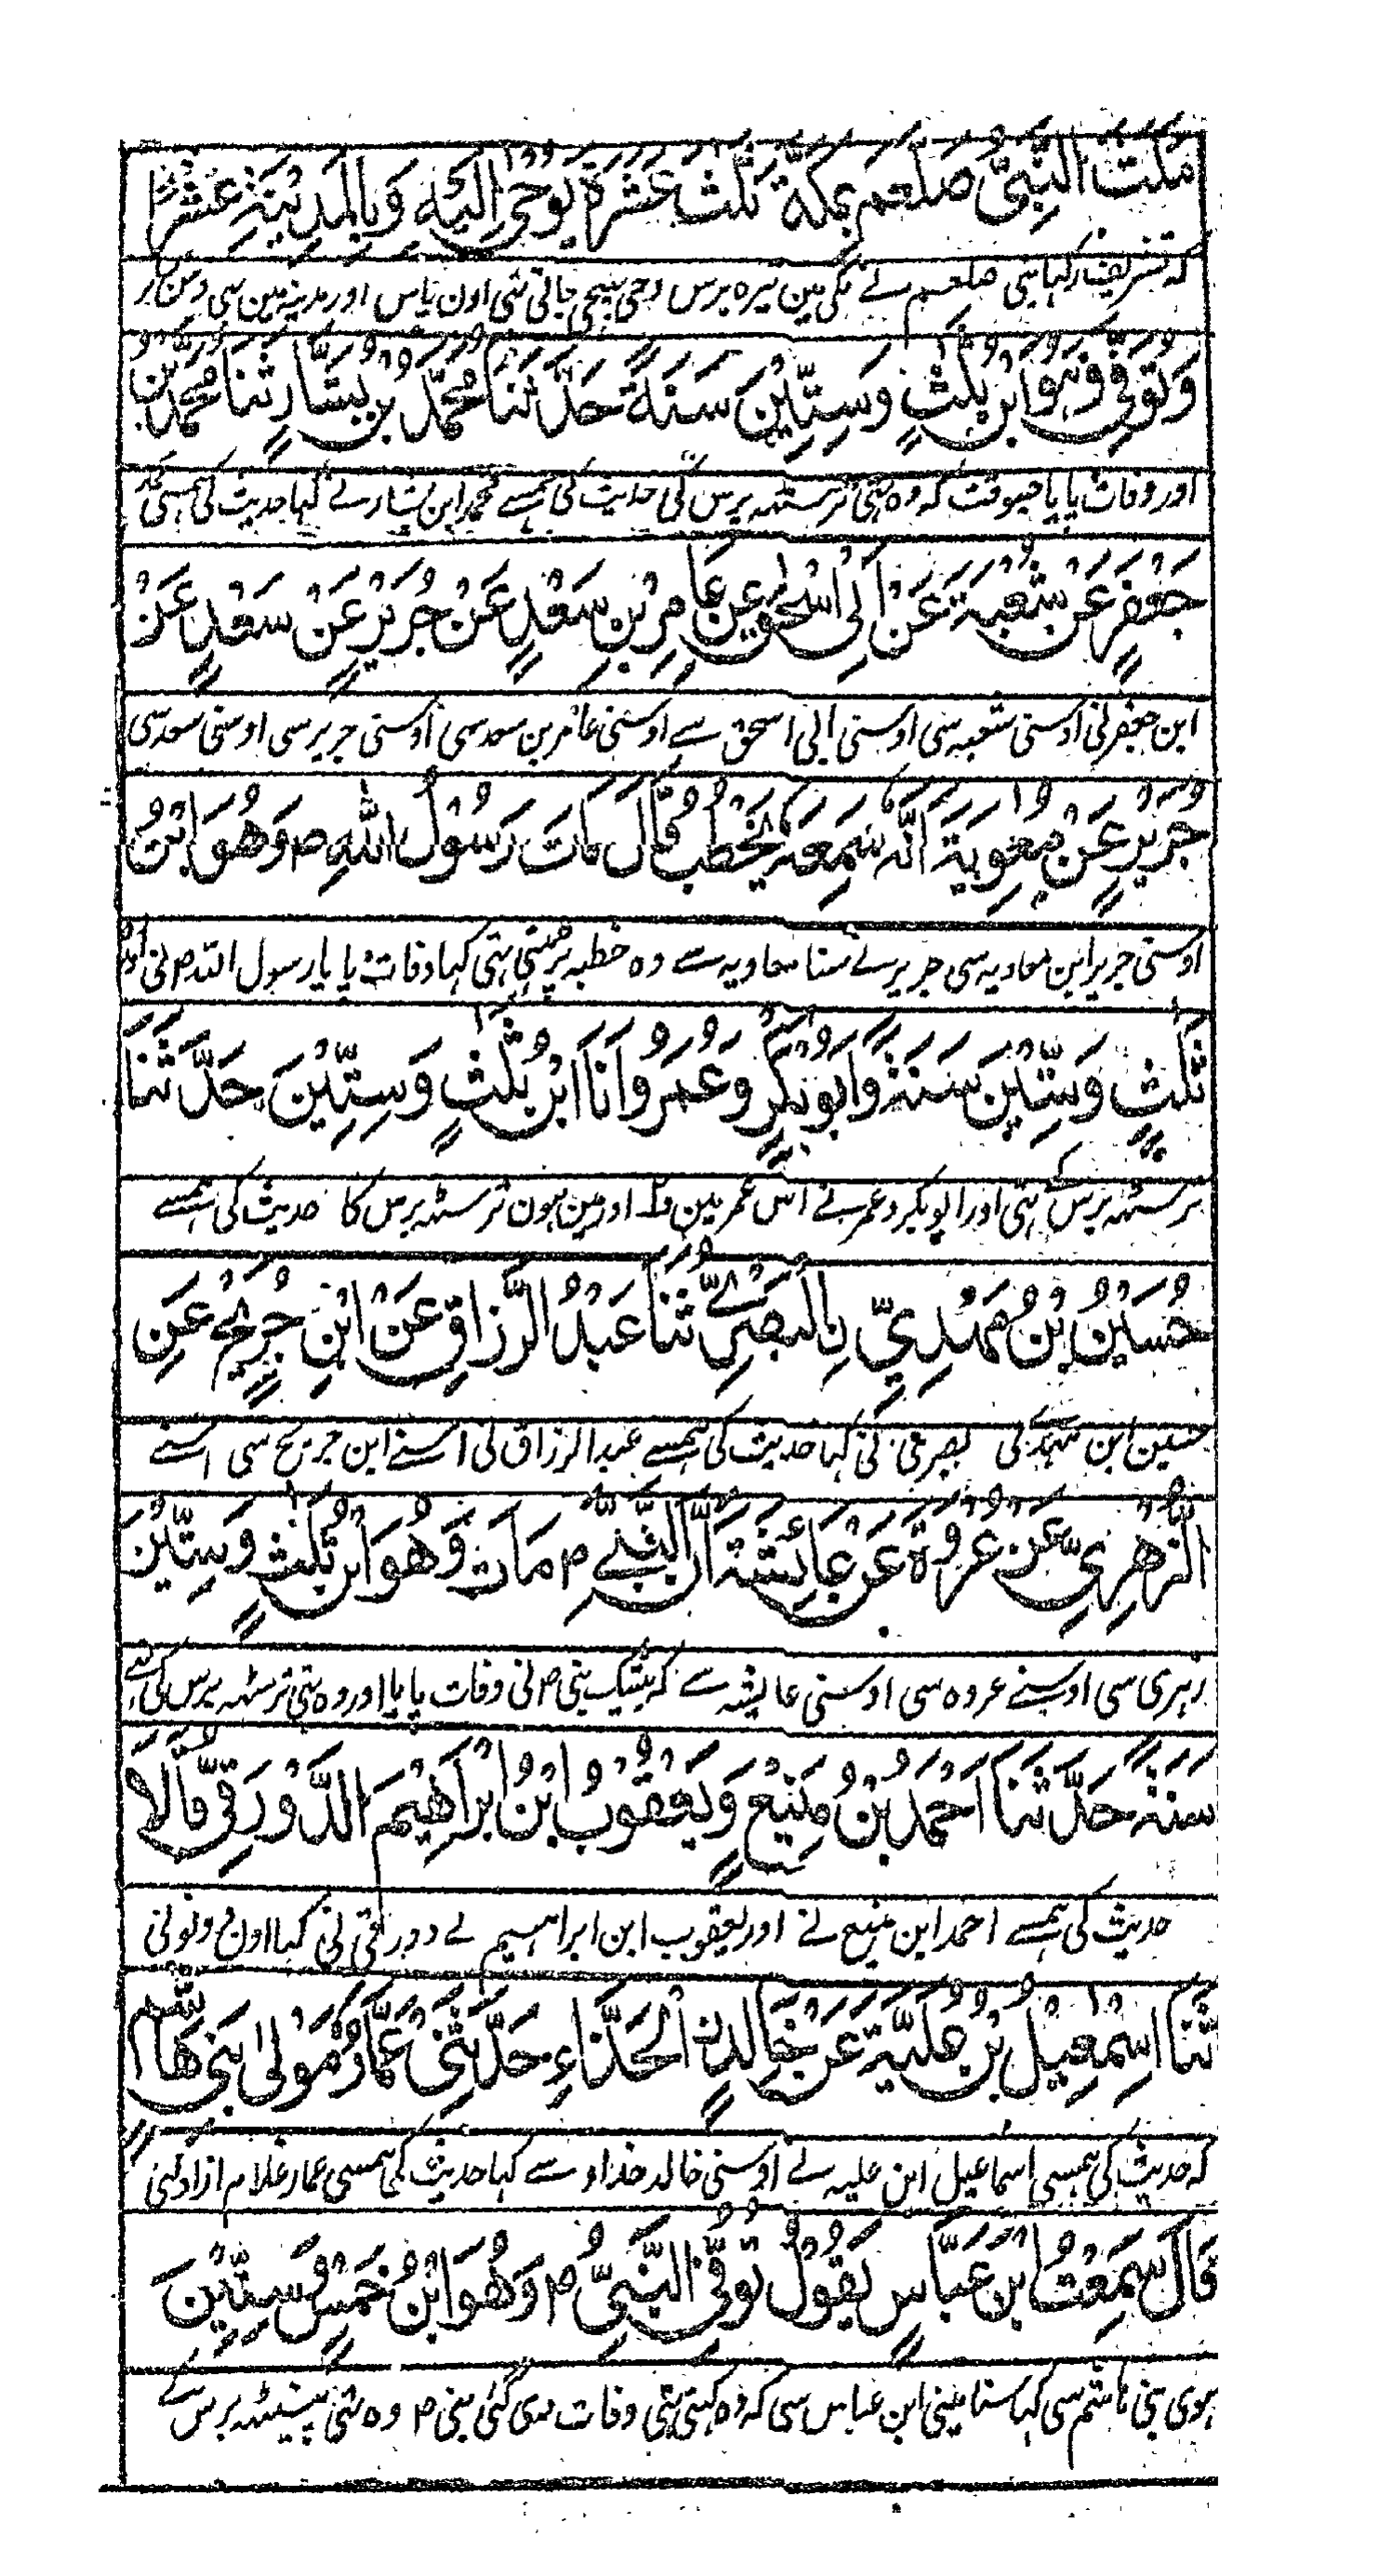 مَكَثَ النَّبِيُّ صلعم بِمَكَّةَ ثَلٰثَ عَشْرَةَ يُوْحٰى اِلَيْهِ وَبِالْمَدِيْنَةِ عَشْرًا
كہ تشریف رکہا نبی صلعم نے مکی مین تیرہ برس وحی بہیجی جاتی تہی اون پاس اور مدینہ مین بہی دس برس
وَتُوُفِّيَ وَهُوَ ابْنُ ثَلٰثٍ وَسِتِّيْنَ سَنَةً حَدَّثَنَا مُحَمَّدُ بْنُ بَشَّارٍ ثَنَا مُحَمَّدُ بْنُ
اور وفات پایا جسوقت کہ وہ تہی ترسٹہہ برس کی حدیث کی ہمسے محمد ابن بشار نے کہا حدیث کی ہمسی محمد
جَعْفَرٍ عَنْ شُعْبَةَ عَنْ اَبِیْ اِسْحٰقَ عَنْ عَامِرِ بْنِ سَعْدٍ عَنْ جُرَيْرٍ عَنْ سَعْدٍ عَنْ
ابن جعفر نی اوسنی شعبہ سی اوسنی ابی اسحق سے اوسنی عامر بن سعد سی اوسنی جریر سی اوسنی سعد سی
جُرَيْرٍ عَنْ مُعٰوِيَةَ اَنَّهٗ سَمِعَهٗ يَخْطُبُ قَالَ مَاتَ رَسُوْلُ اللهِ ؐ وَهُوَ ابْنُ
اوسنی جریر ابن معاویہ سی جریر نے سنا معاویہ سے وہ خطبہ پڑہتی تہی کہا وفات پایا رسول اللہ ؐ نی اور
ثَلٰثٍ وَسِتِّيْنَ سَنَةً وَاَبُوْبَكْرٍ وَعُمَرُ وَاَنَا ابْنُ ثَلٰثٍ وَسِتِّيْنَ حَدَّثَنَا
ترسٹہہ برس کے تہی اور ابوبکر و عمر نے اس عمر مین اور مین ہون ترسٹہہ برس کا حدیث کی ہمسے
حُسَيْنُ بْنُ مَهْدِيِّ نِ الْبَصَرِيُّ ثَنَا عَبْدُ الرَّزَّاقِ عَنْ ابْنِ جُرَيْجٍ عَنِ
حسین ابن مہدی بصری نی کہا حدیث کی ہمسے عبد الرزاق نی اسنے ابن جریج سی اسنے
الزُّهْرِيِّ عَنْ عُرْوَةَ عَنْ عَائِشَةَ اَنَّ النَّبِيَّ ؐ مَاتَ وَهُوَ ابْنُ ثَلٰثٍ وَسِتِّيْنَ
زہری سی اوسنے عروہ سی اوسنی عایشہ سے کہ بیشک نبی ؐ نی وفات پایا اور وہ تہی ترسٹہہ برس کی
سَنَةً حَدَّثَنَا اَحْمَدُ بْنُ مَنِيْعٍ وَيَعْقُوْبُ ابْنُ اِبْرَاهِيْمَ الدَّوْرَقِيُّ قَالَا
حدیث کی ہمسے احمد ابن منیع نے اور یعقوب ابن ابراہیم نے دورقی نی کہا اون دونونی
ثَنَا اِسْمٰعِيْلُ بْنُ عُلَيَّةَ عَنْ خَالِدِ نِ الْحَذَّاءِ حَدَّثَنِیْ عَمَّارٌ مَوْلٰى بَنِیْ هَاشِمٍ
کہ حدیث کی ہمسی اسماعیل ابن علیہ نے اوسنی خالد حذاء سے کہا حدیث کی ہمسی عمار غلام ازاد
قَالَ سَمِعْتُ ابْنَ عَبَّاسٍ يَقُوْلُ تُوُفِّيَ النَّبِيُّ ؐ وَهُوَ ابْنُ خَمْسٍ وَسِتِّيْنَ
ہوی بنی ہاشم سی کہا سنا مینی ابن عباس سی کہ وہ کہتی تہی وفات دی گئی نبی ؐ وہ تہی پینسٹہہ برس کے